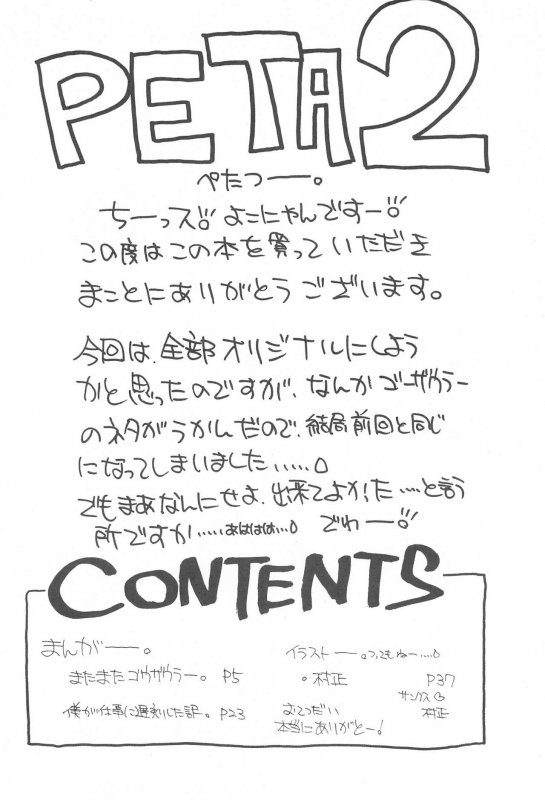 PETA2
ぺたつー。
ちーっス!! よこにゃんですー!!
この度はこの本を買っていただき
まことにありがとうございます。
今回は、全部オリジナルにしよう
かと思ったのですが、なんかゴーザウラー
のネタがうかんだので、結局前回と同じ
になってしまいました.....
でもまあなんにせよ、出来てよかた....と言う
所ですか.....あははは... でわー!!
CONTENTS
まんがー。
またまたゴウザウラー。 P5
僕が仕事に遅刻した訳。 P23
イラストー。つってもねー....
。村正 P37
サンクス
おてつだい 村正
本当にありがとー!